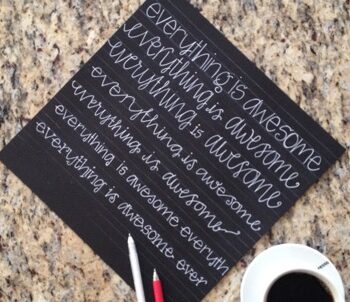 everything is awesome
everything is awesome
everything is awesome
everything is awesome
everything is awesome
everything is awesome everyth
everything is awesome ever